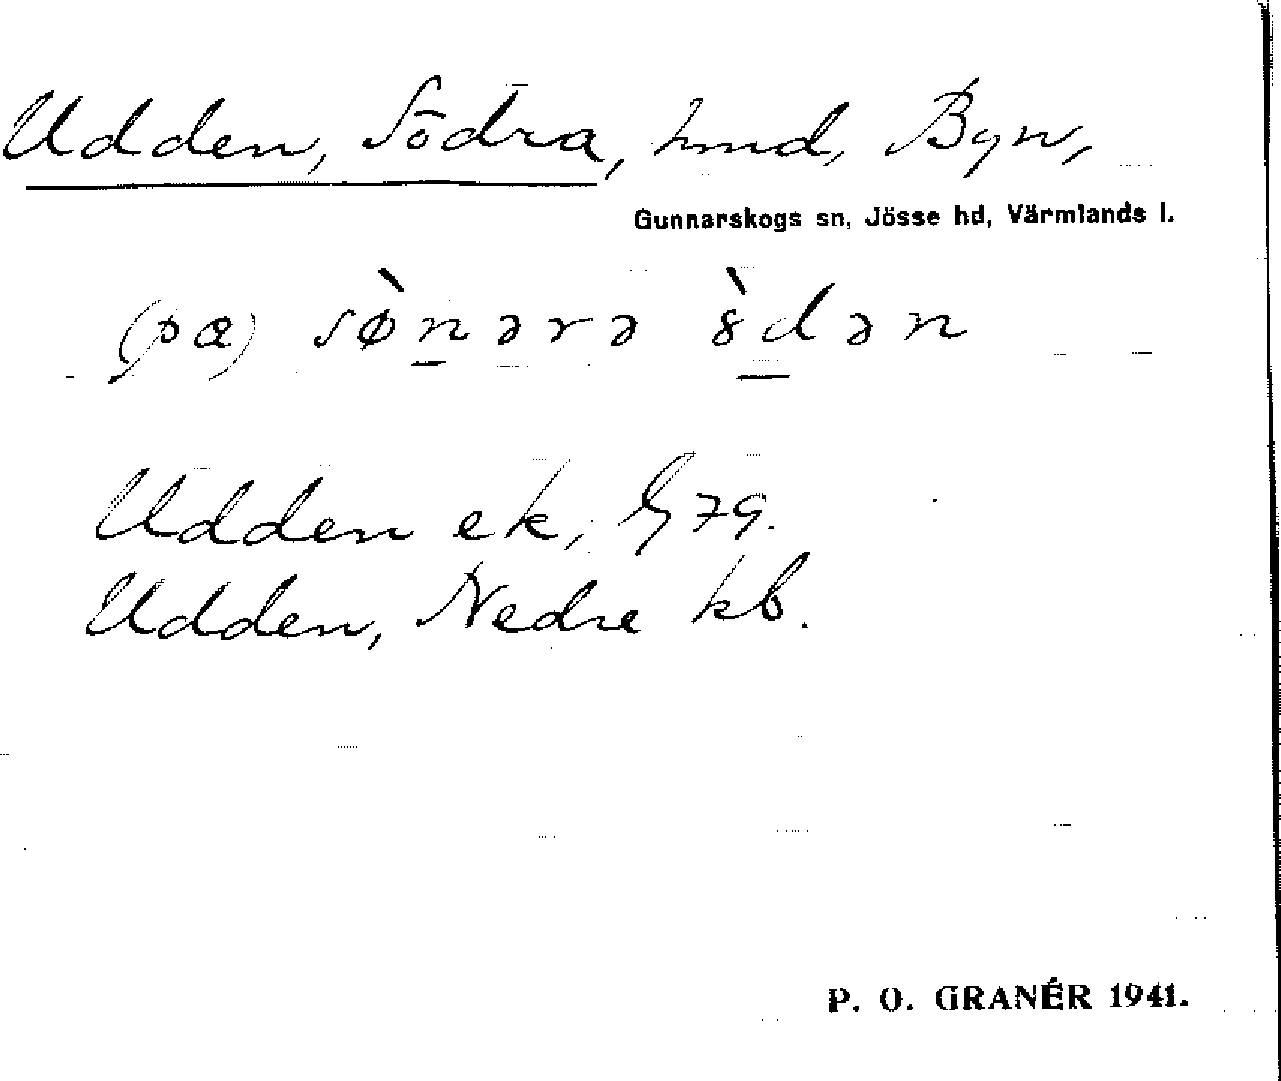 Udden, Södra, hmd, Byn,
Gunnarskogs sn, Jösse hd, Värmlands l.
(pæ) sø̀n̲ərə 8̀d̲ən
Udden ek, G 79.
Udden, Nedre kb.
P. O. GRANÉR 1941.